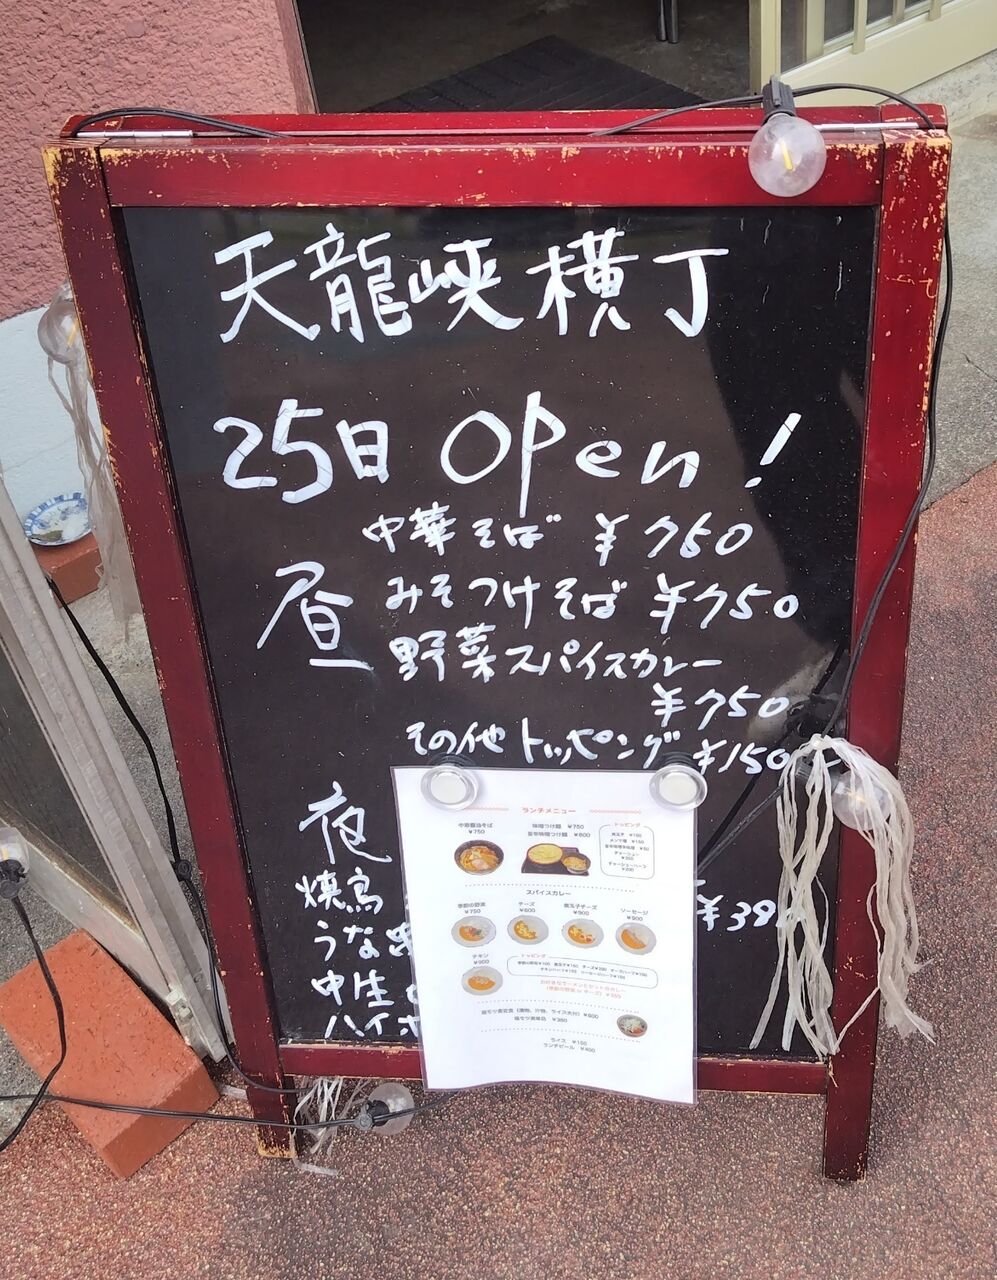 天龍峡横丁
25日 Open!
昼
中華そば ¥750
みそつけそば ¥750
野菜スパイスカレー
¥750
その他トッピング ¥150
夜
焼鳥
うな串
中生
ハイボ
¥38
ランチメニュー
中華醤油そば
¥750
味噌つけ麺 ¥750
旨辛味噌つけ麺 ¥800
トッピング
煮玉子 ¥150
メンマ増 ¥150
チャーシュー
チャーシューハーフ
¥200
スパイスカレー
季節の野菜
¥750
チーズ
¥800
煮玉子チーズ
¥900
ソーセージ
¥900
チキン
¥900
トッピング
お好きなラーメンとセットのカレー
(季節の野菜 or チーズ) ¥355
ライス ¥150
ランチビール ¥400